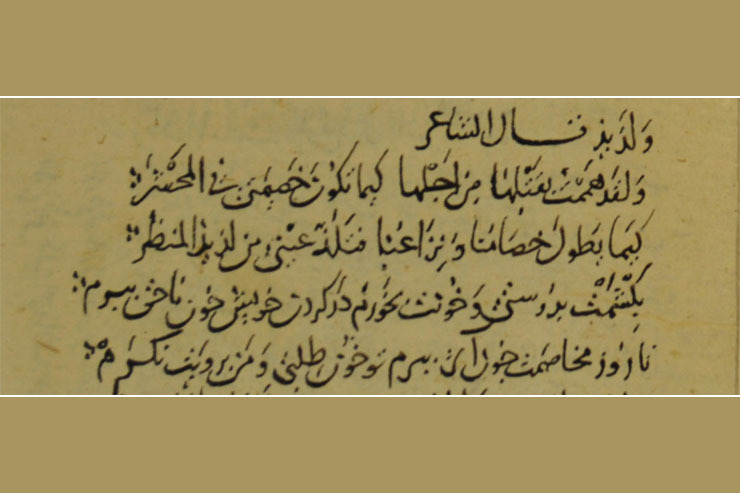 ولذیذ قال الشاعر
ولقد هممت بقتلها من اجلها كيما تكون خصيمتي في المحشر
كيما يطول خصامنا ونزاعنا فتلذ عيني من لذيذ المنظر
بدوستی وخونت بخورم در کردن خویش خون ناحق ببرم
تا روز مخاصمت جون ببرم تو خون طلبی و من برویت نکرم